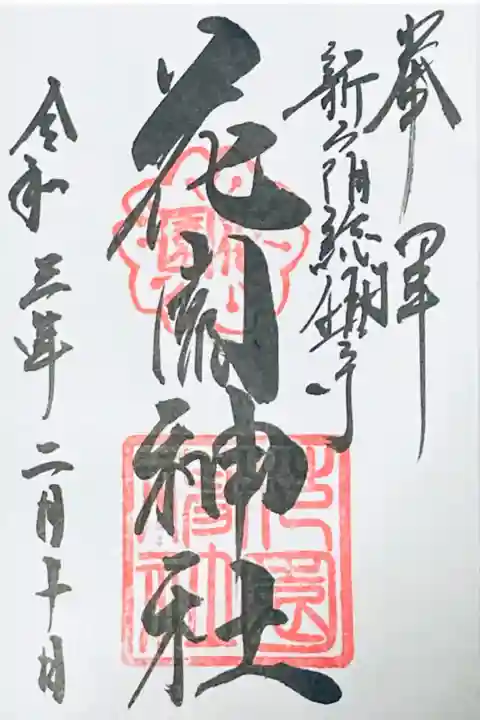 奉拝
新宿総鎮守
花園神社
令和三年二月十日